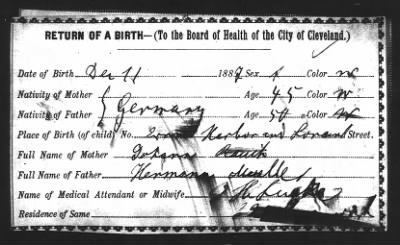 RETURN OF A BIRTH—(To the Board of Health of the City of Cleveland.)
Date of Birth Dec 11 1887 Sex f Color W
Nativity of Mother Age 45 Color W
Nativity of Father } Germany Age 50 Color W
Place of Birth (of child) No. Harbor and Lorain Street.
Full Name of Mother Johanna
Full Name of Father Hermann
Name of Medical Attendant or Midwife
Residence of Same